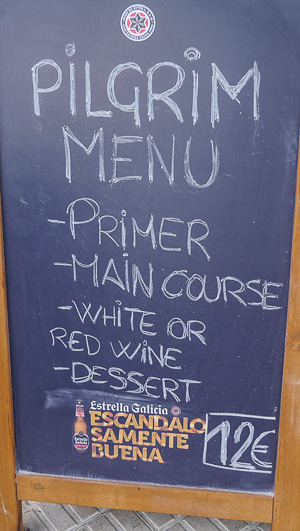 PILGRIM
MENU
-PRIMER
-MAIN COURSE
-WHITE OR
RED WINE
-DESSERT
Estrella Galicia
ESCANDALO
SAMENTE
BUENA
12€